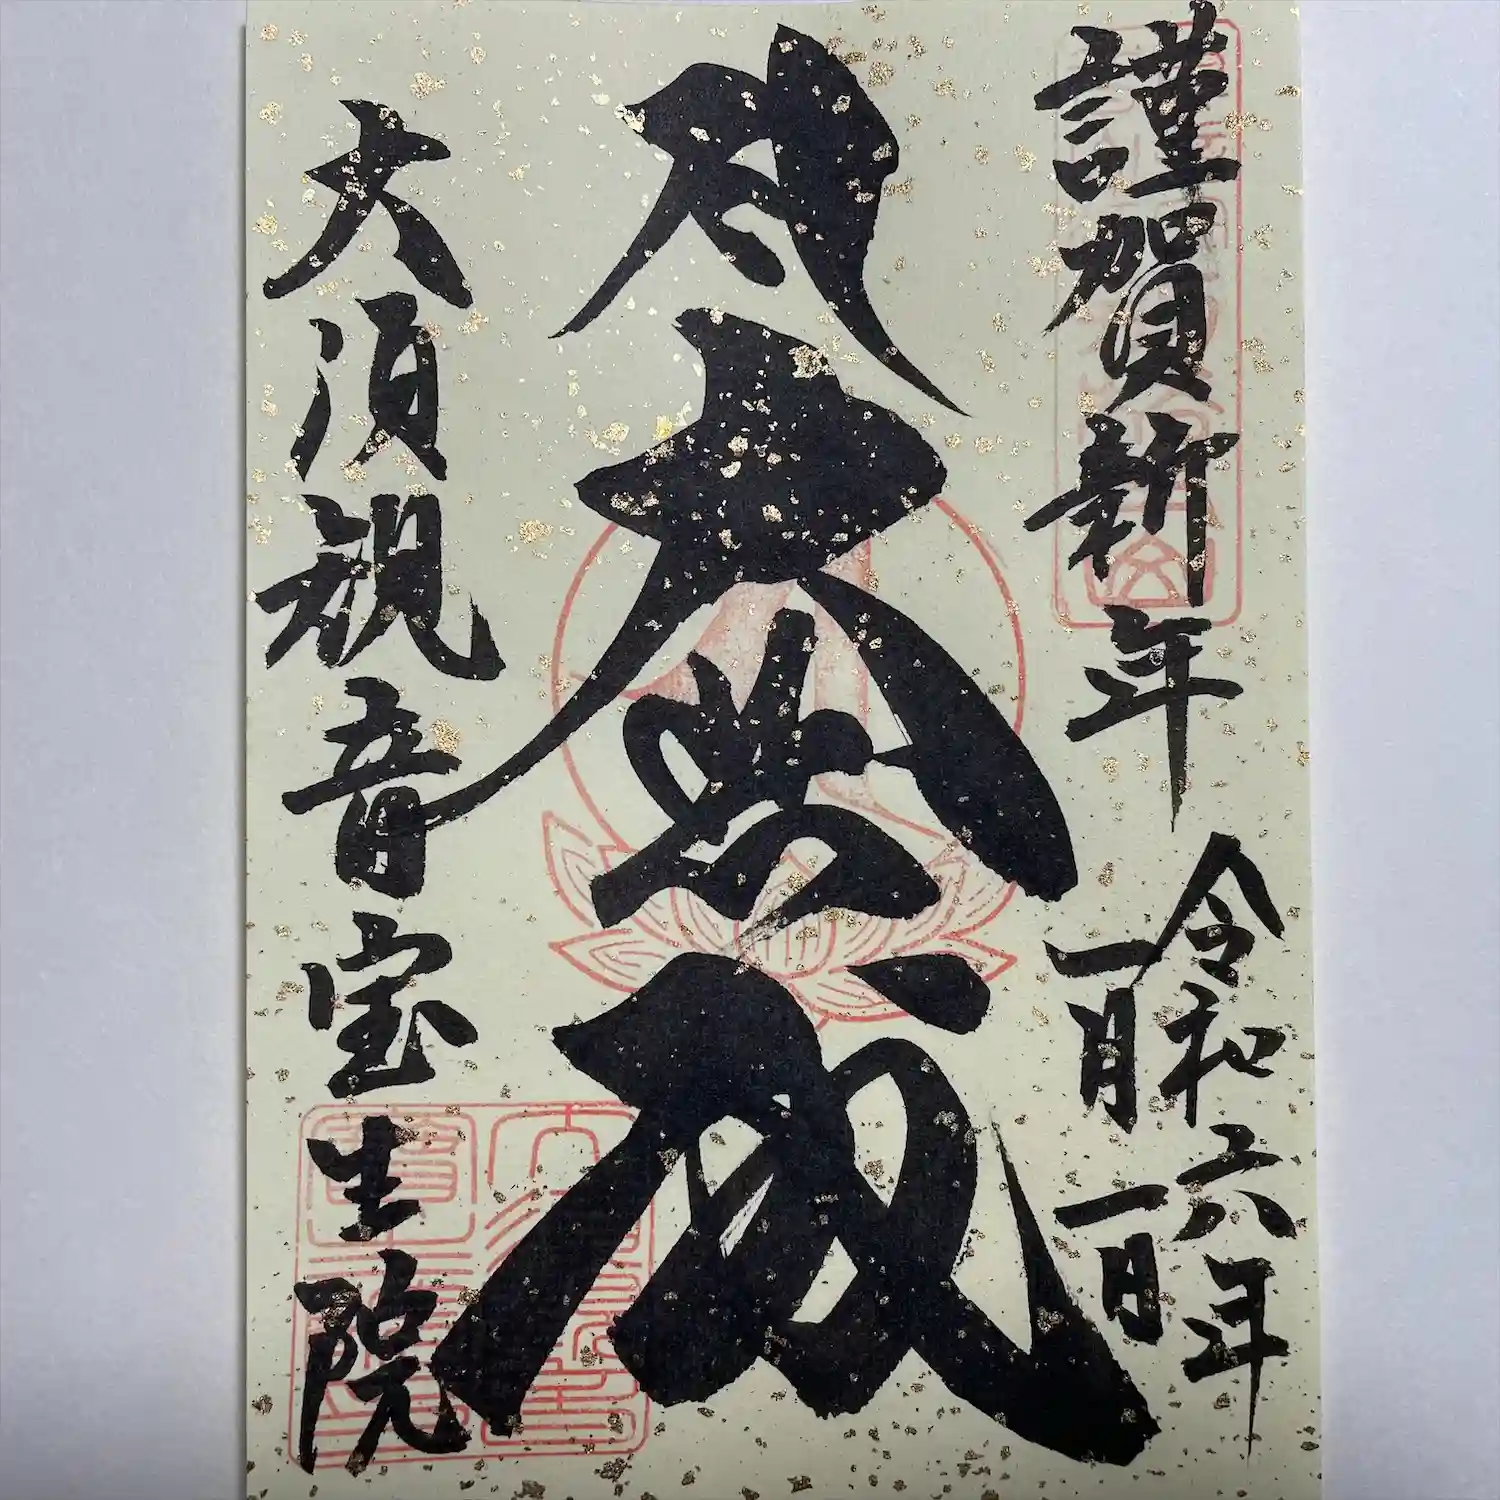 謹賀新年
令和六年
一月一日
大悲殿
大須観音宝生院